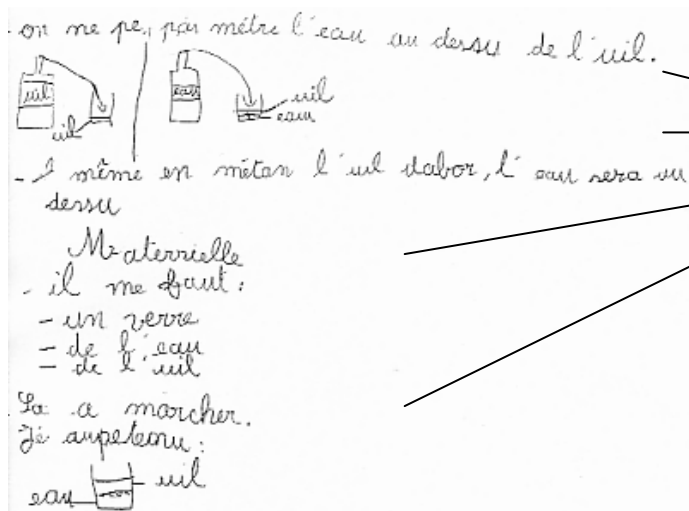 - on ne pe, pas métre l'eau au dessu de l'uil.
uil
eau
uil
eau
uil
- même en métan l'uil dabor, l'eau sera
dessu
Materrielle
- il me faut :
- un verre
- de l'eau
- de l'uil
Sa a marcher.
Jé aupetenu :
eau
uil